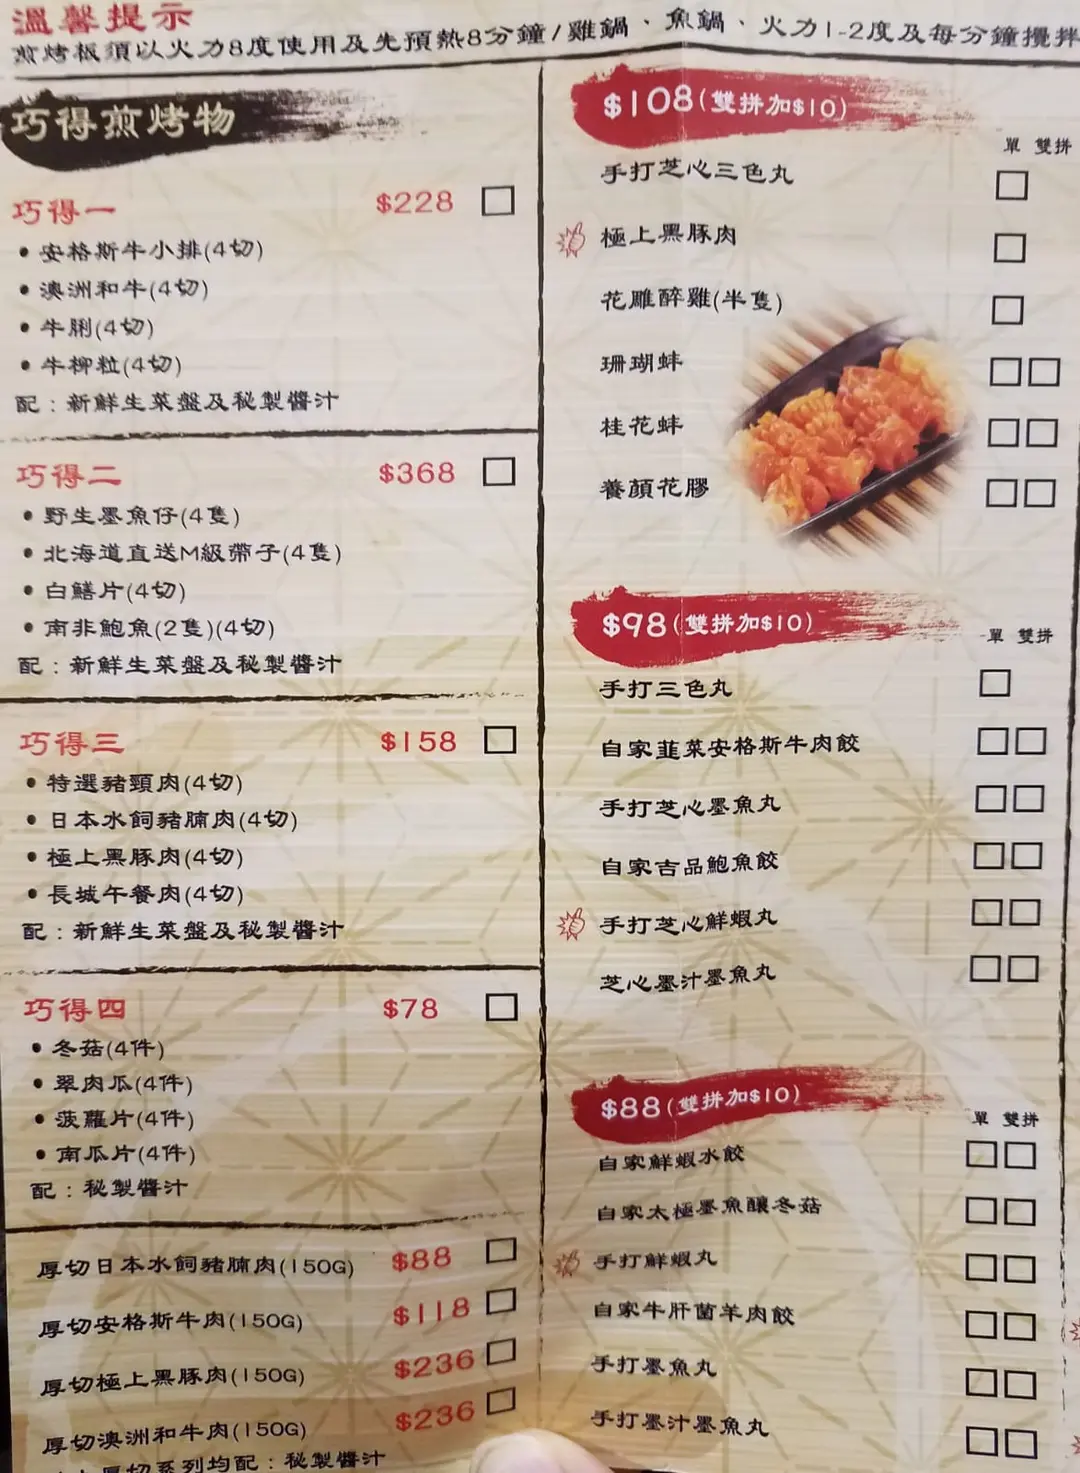 溫馨提示
煎烤板須以火力8度使用及先預熱8分鐘/雞鍋、魚鍋、火力1-2度及每分鐘攪拌
巧得煎烤物
巧得一 $228
• 安格斯牛小排(4切)
• 澳洲和牛(4切)
• 牛脷(4切)
• 牛柳粒(4切)
配：新鮮生菜盤及秘製醬汁
巧得二 $368
• 野生墨魚仔(4隻)
• 北海道直送M級帶子(4隻)
• 白鱔片(4切)
• 南非鮑魚(2隻)(4切)
配：新鮮生菜盤及秘製醬汁
巧得三 $158
• 特選豬頸肉(4切)
• 日本水飼豬腩肉(4切)
• 極上黑豚肉(4切)
• 長城午餐肉(4切)
配：新鮮生菜盤及秘製醬汁
巧得四 $78
• 冬菇(4件)
• 翠肉瓜(4件)
• 菠蘿片(4件)
• 南瓜片(4件)
配：秘製醬汁
厚切日本水飼豬腩肉(150G) $88
厚切安格斯牛肉(150G) $118
厚切極上黑豚肉(150G) $236
厚切澳洲和牛肉(150G) $236
厚切系列均配：秘製醬汁
$108(雙拼加$10)
單 雙拼
手打芝心三色丸
極上黑豚肉
花雕醉雞(半隻)
珊瑚蚌
桂花蚌
養顏花膠
$98(雙拼加$10)
單 雙拼
手打三色丸
自家韮菜安格斯牛肉餃
手打芝心墨魚丸
自家吉品鮑魚餃
手打芝心鮮蝦丸
芝心墨汁墨魚丸
$88(雙拼加$10)
單 雙拼
自家鮮蝦水餃
自家太極墨魚釀冬菇
手打鮮蝦丸
自家牛肝菌羊肉餃
手打墨魚丸
手打墨汁墨魚丸